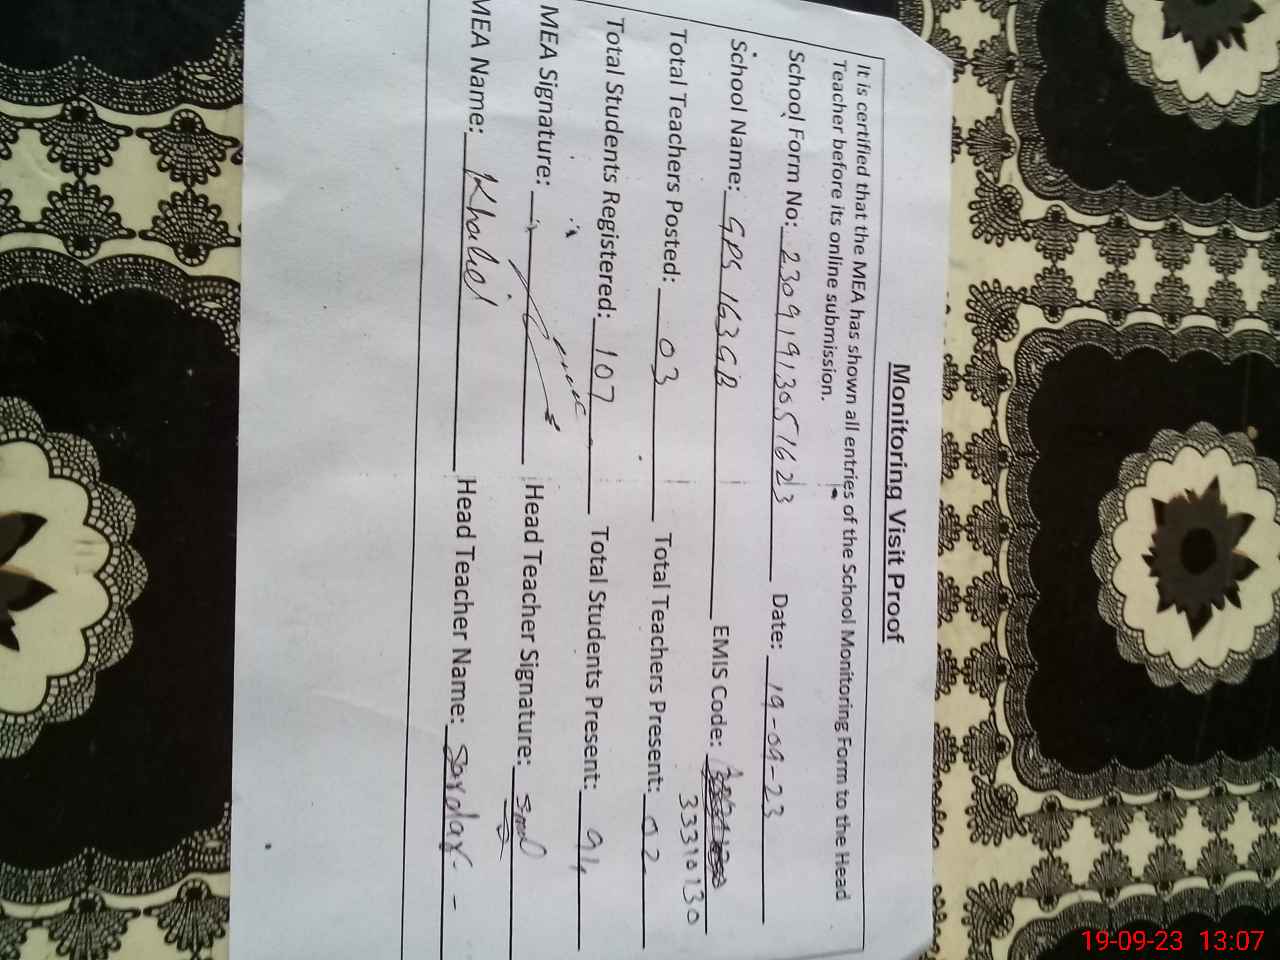 Monitoring Visit Proof
It is certified that the MEA has shown all entries of the School Monitoring Form to the Head
Teacher before its online submission.
School Form No: 23091913051623 Date: 19-09-23
School Name: GPS 163GB EMIS Code:
33310130
Total Teachers Posted: 03 Total Teachers Present: 02
Total Students Registered: 107 Total Students Present: 91
MEA Signature: Head Teacher Signature:
MEA Name: Khalid Head Teacher Name: Sardar -
19-09-23 13:07